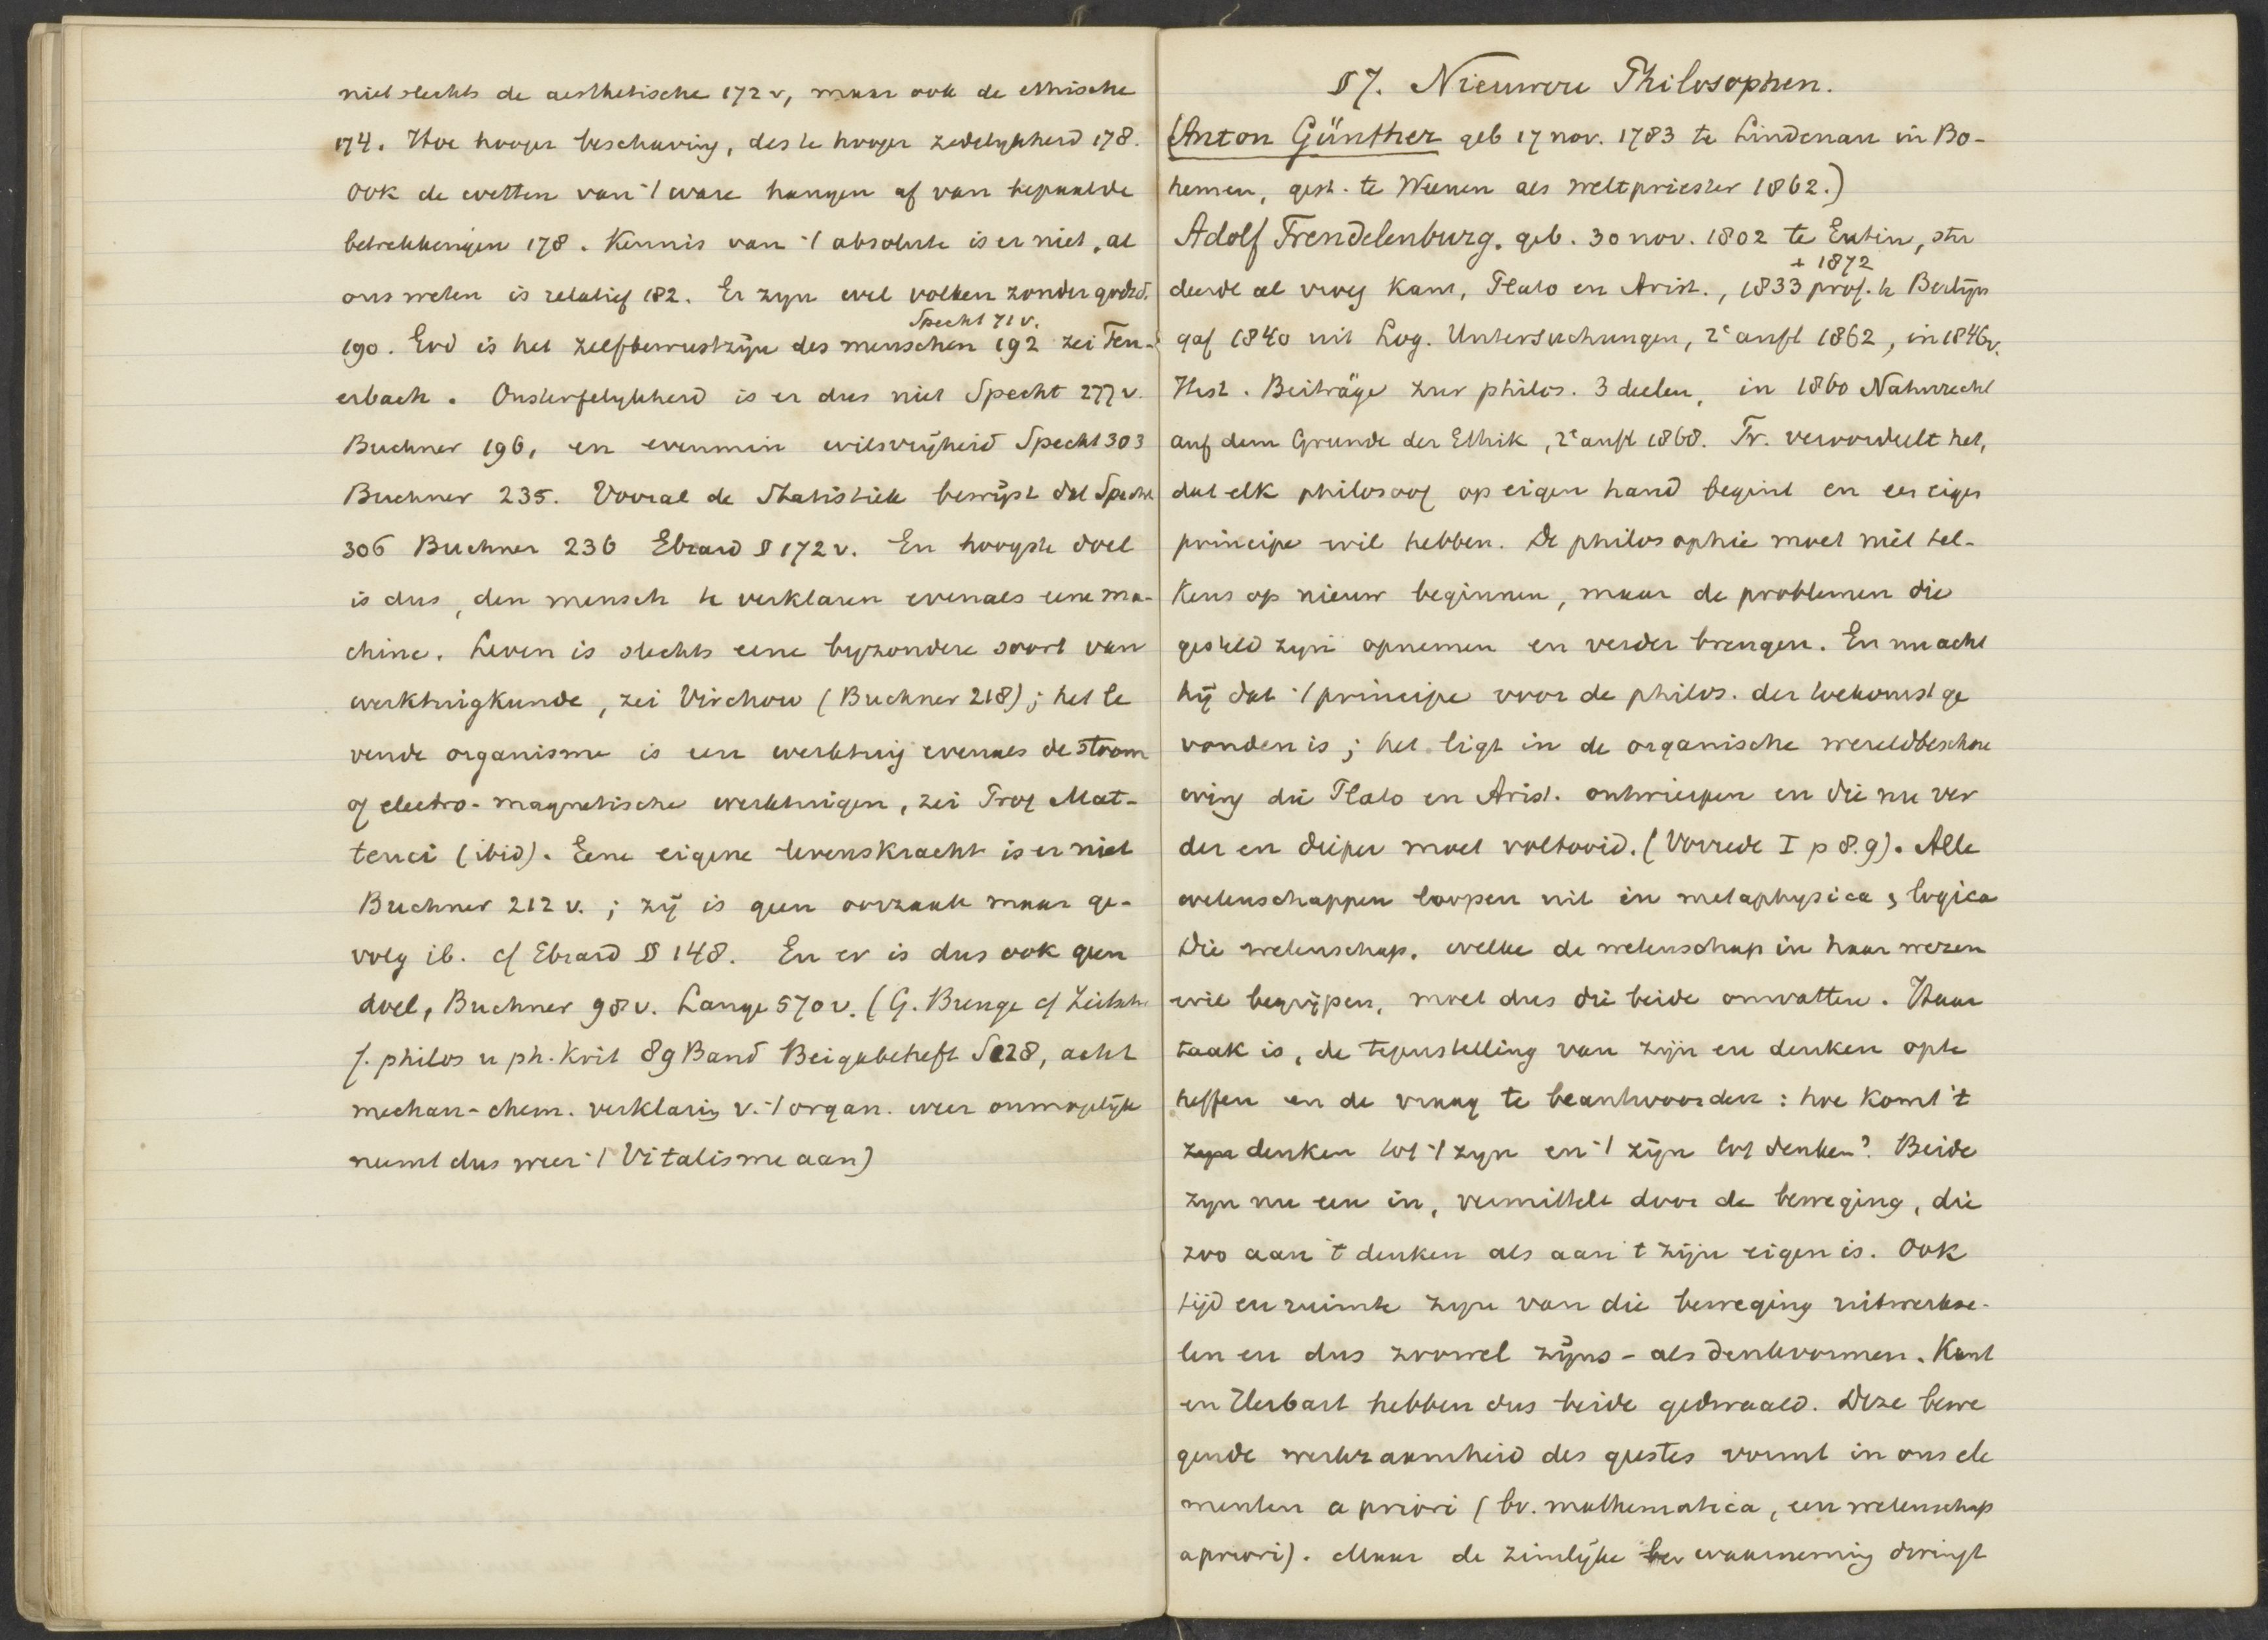 niet slechts de aesthetische 172 v, maar ook de ethische
174. Hoe hooger beschaving, des te hooger zedelykheid 178.
Ook de wetten van 't ware hangen af van bepaalde
betrekkingen 178. Kennis van 't absolute is er niet, al
ons weten is relatief 182. Er zyn wel volken zonder godsd.
Specht 71 v.
190. God is het zelfbewustzijn des menschen 192 zei Feu-
erbach. Onsterfelykheid is er dus niet Specht 277 v.
Buchner 196, en evenmin wilsvrijheid Specht 303
Buchner 235. Vooral de Statistiek bewijst dat Specht
306 Buchner 236 Ebrard § 172 v. En hoogste doel
is dus, den mensch te verklaren evenals eene ma-
chine. Leven is slechts eene byzondere soort van
werktuigkunde, zei Virchow (Buchner 218); het le
vende organisme is een werktuig evenals de stoom
of electro-magnetische werktuigen, zei Prof Mat-
teuci (ibid). Eene eigene levenskracht is er niet
Buchner 212 v.; zij is geen oorzaak maar ge-
volg ib. cf Ebrard § 148. En er is dus ook geen
doel, Buchner 98 v. Lange 570 v. (G. Bunge cf Zeitschr.
f. philos u ph. Krit 89 Band Beigabeheft S 128, acht
mechan-chem. verklaring v. 't organ. weer onmogelijk
neemt dus weer 't Vitalisme aan)
§ 7. Nieuwere Philosophen.
(Anton Günther geb 17 nov. 1783 te Lindenau in Bo-
hemen, gest. te Weenen als weltpriester 1862.)
Adolf Trendelenburg. geb. 30 nov. 1802 te Eutin, stu
+ 1872
deerde al vroeg Kant, Plato en Arist., 1833 prof. te Berlijn
gaf 1840 uit Log. Untersuchungen, 2e aufl 1862, in 1846 v.
Hist. Beiträge zur philos. 3 deelen, in 1860 Naturrecht
auf dem Grunde der Ethik, 2e aufl 1868. Tr. veroordeelt het,
dat elk philosoof op eigen hand begint en een eigen
principe wil hebben. De philosophie moet niet tel-
kens op nieuw beginnen, maar de problemen die
gesteld zyn opnemen en verder brengen. En nu acht
hij dat 't principe voor de philos. der toekomst ge
vonden is; het ligt in de organische wereldbeschou
wing die Plato en Arist. ontwierpen en die nu ver
der en dieper moet voltooid. (Vorrede I p 8.9). Alle
wetenschappen loopen uit in metaphysica & logica
Die wetenschap, welke de wetenschap in haar wezen
wil begrijpen, moet dus die beide omvatten. Haar
taak is, de tegenstelling van zijn en denken op te
heffen en de vraag te beantwoorden: hoe komt 't
zyn denken tot 't zyn en 't zijn tot denken? Beide
zyn nu een in, vermittelt door de beweging, die
zoo aan 't denken als aan 't zijn eigen is. Ook
tijd en ruimte zyn van die beweging uitwerkse-
len en dus zoowel zijns- als denkvormen. Kant
en Herbart hebben dus beide gedwaald. Deze bewe
gende werkzaamheid des geestes vormt in ons ele
menten a priori (bv. mathematica, een wetenschap
apriori). Maar de zinlijke waarneming dringt